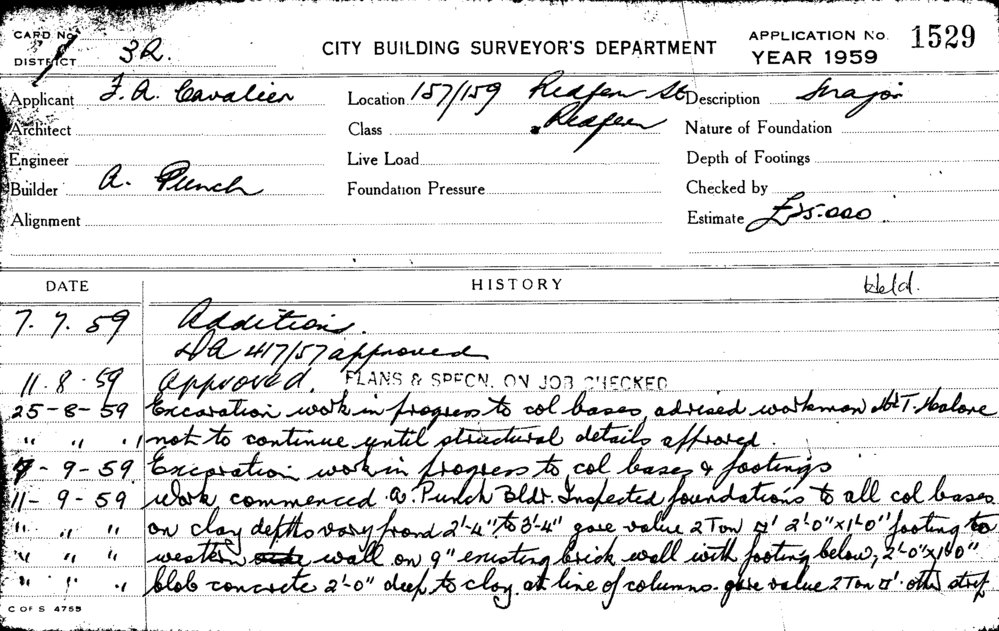 CARD No. 1
DISTRICT 32.
CITY BUILDING SURVEYOR'S DEPARTMENT
APPLICATION No. 1529
YEAR 1959
Applicant F. A. Cavalier
Location 157/159 Redfern St
Redfern
Description Major
Architect
Class
Nature of Foundation
Engineer
Live Load
Depth of Footings
Builder A. Punch
Foundation Pressure
Checked by
Alignment
Estimate £25.000.
DATE HISTORY Held.
7. 7. 59 Additions.
DA 417/57 approved
11. 8. 59 Approved. PLANS & SPECN. ON JOB CHECKED
25-8-59 Excavation work in progress to col bases, advised workman Mr T. Malone
" " " not to continue until structural details approved.
9-59 Excavation work in progress to col bases & footings
11-9-59 Work commenced A. Punch Bldr. Inspected foundations to all col bases.
" " " on clay depths vary from 2'-4" to 3'-4" gave value 2 Ton □' 2'-0"x1'-0" footing to
" " " western wall on 9" existing brick wall with footing below, 2'-0"x1'-0"
" " " blob concrete 2'-0" deep to clay at line of columns. gave value 2 Ton □'. other strip
C OF S 4755